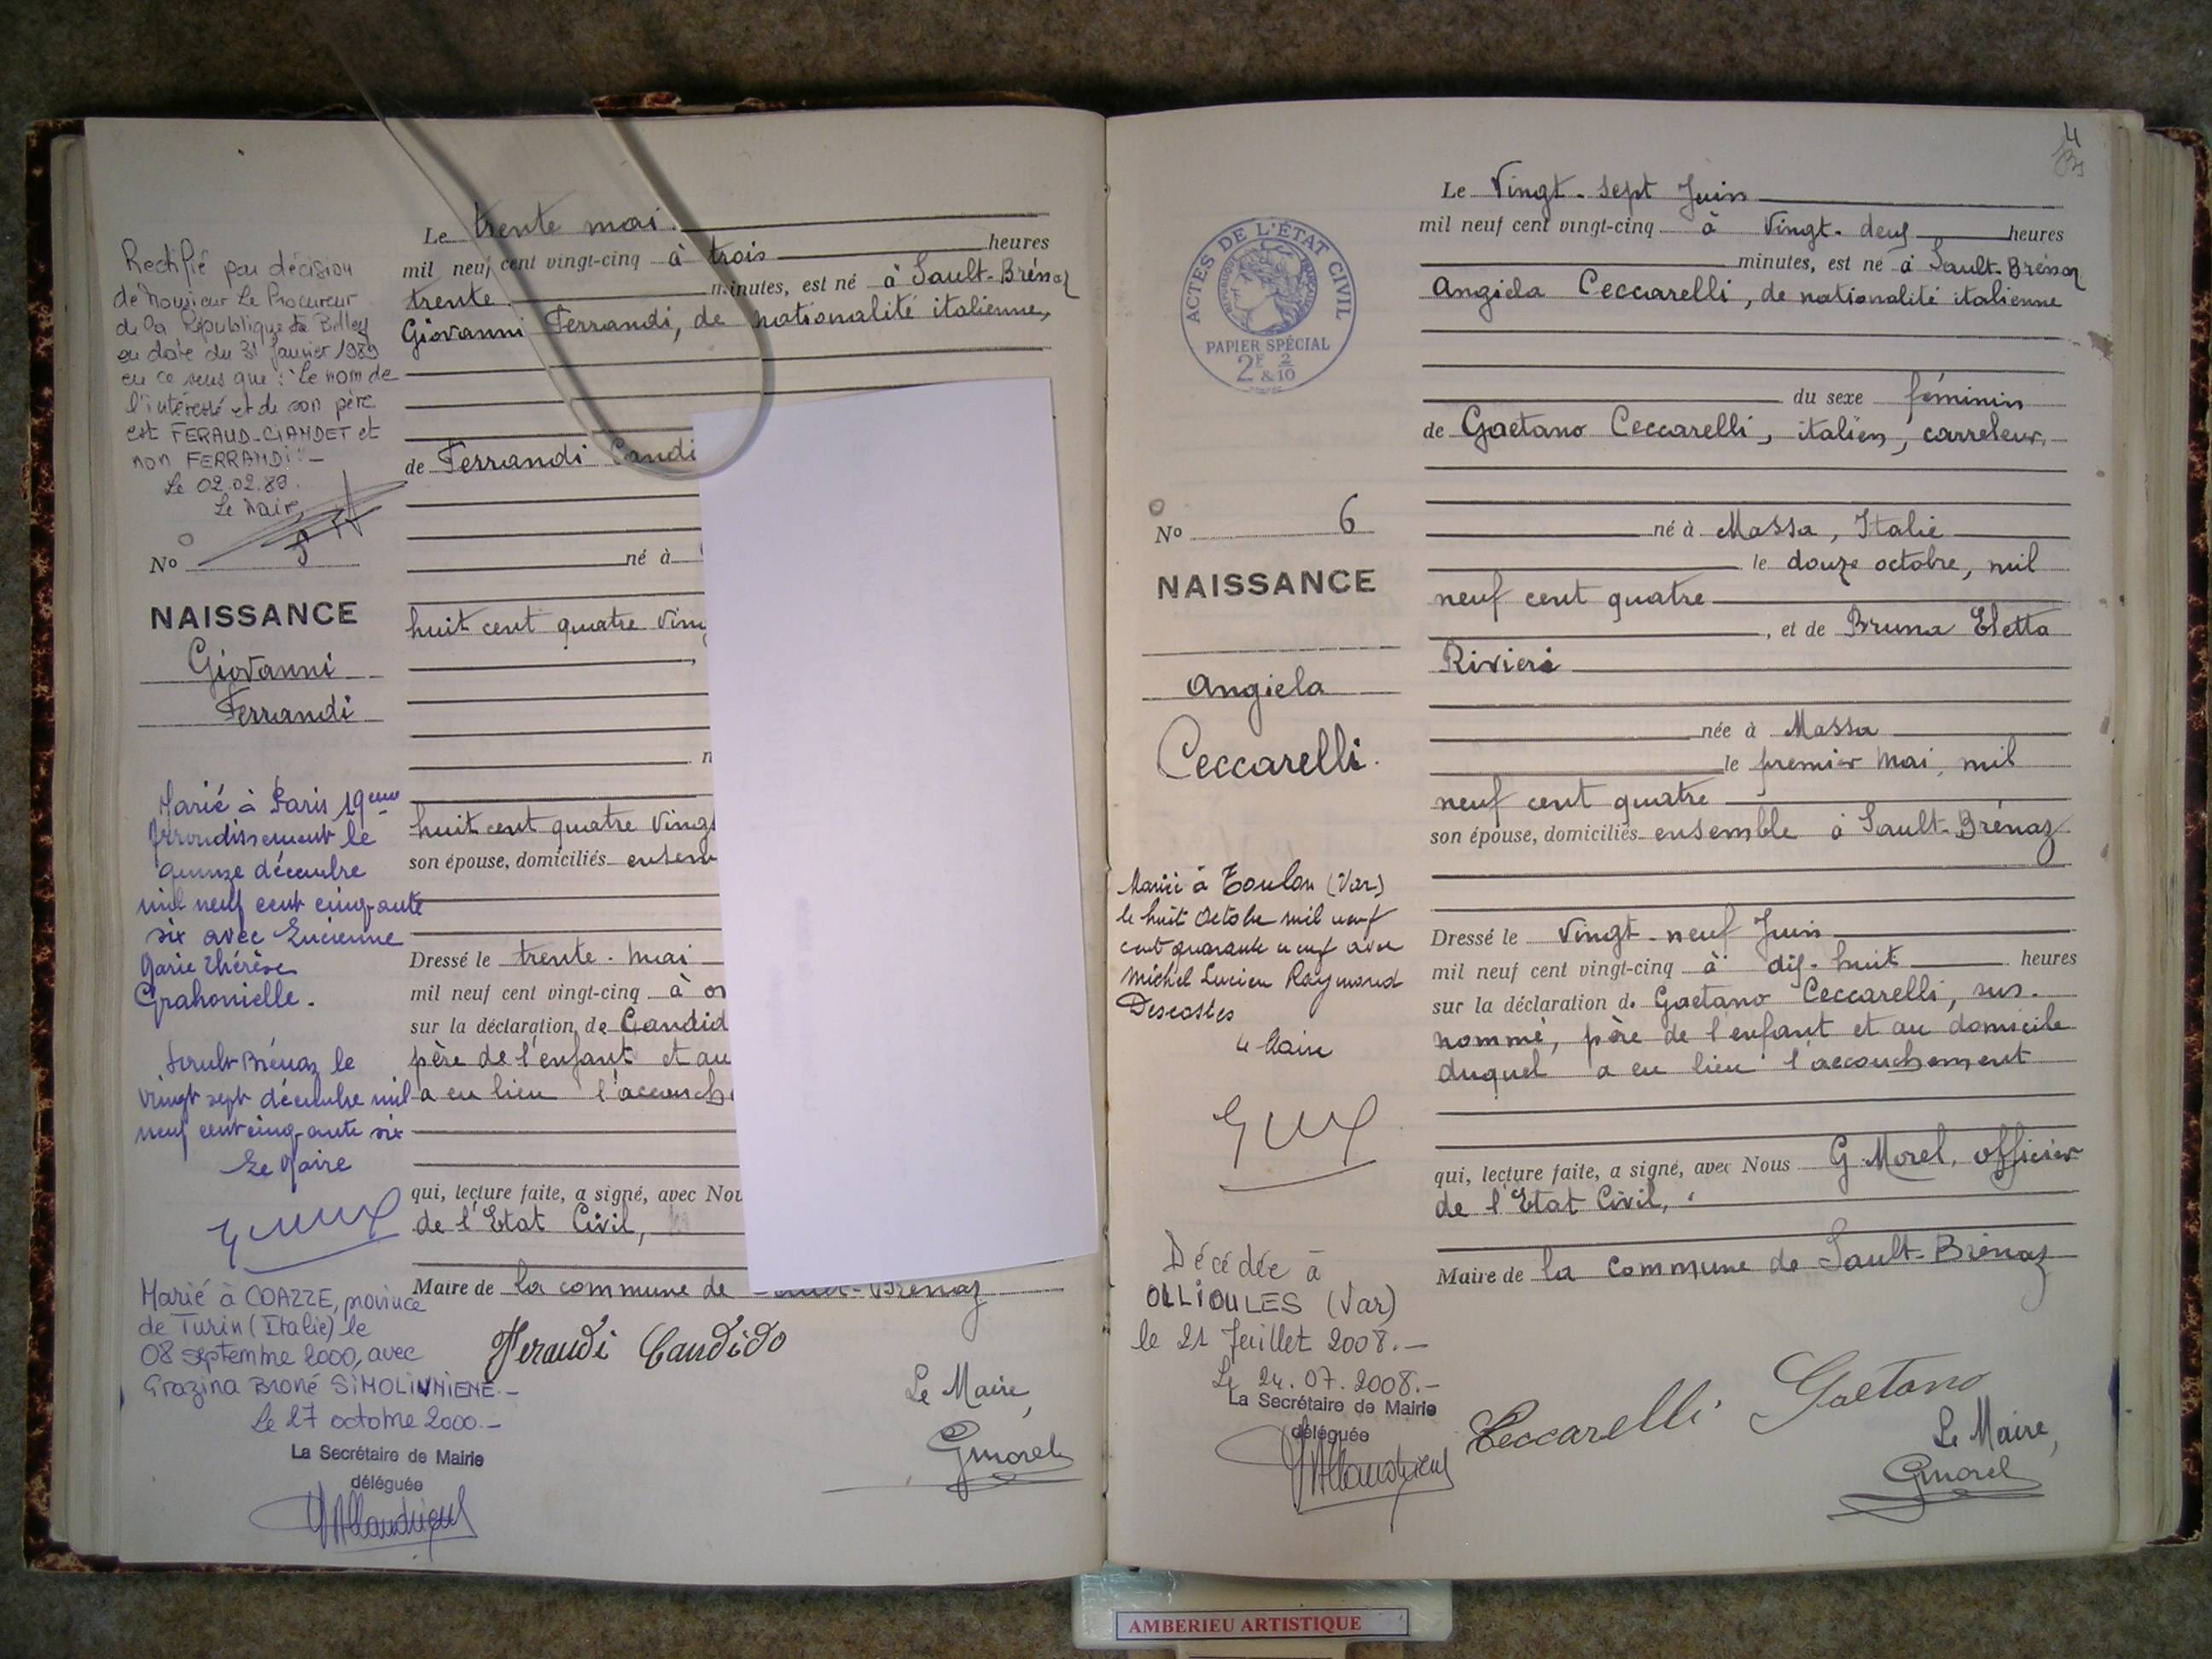 Rectifié par décision
de Monsieur Le Procureur
de la République de Belley
en date du 31 Janvier 1989
en ce sens que : "Le nom de
l'intéressé et de son père
est FERAUD-CIANDET et
non FERRANDI" -
Le 02.02.89.
Le Maire,
No 5
NAISSANCE
Giovanni
Ferrandi
Marié à Paris 19eme
Arrondissement le
quinze décembre
mil neuf cent cinquante
six avec Lucienne
Marie Thérèse
Grahonielle.
Sault-Brénaz le
vingt sept décembre mil
neuf cent cinquante six
Le Maire
Marié à COAZZE, province
de Turin (Italie) le
08 septembre 2000, avec
Grazina Broné SIMOLIUNIENE.-
Le 27 octobre 2000.-
La Secrétaire de Mairie
déléguée
Le trente mai.
mil neuf cent vingt-cinq à trois heures
trente minutes, est né à Sault-Brénaz
Giovanni Ferrandi, de nationalité italienne,
de Ferrandi Candi
né à
huit cent quatre Ving
huit cent quatre Vingt
son épouse, domiciliés ensem
Dressé le trente. mai
mil neuf cent vingt-cinq à on
sur la déclaration de Candid
père de l'enfant et au
a eu lieu l'accouche
qui, lecture faite, a signé, avec Nou
de l'Etat Civil,
Maire de la commune de Sault-Brénaz
Feraudi Candido
Le Maire,
Gmorel
4
ACTES DE L'ÉTAT CIVIL
RÉPUBLIQUE FRANÇAISE
PAPIER SPÉCIAL
2F 2
& 10
No 6
NAISSANCE
Angiela
Ceccarelli.
Mariée à Toulon (Var)
le huit Octobre mil neuf
cent quarante neuf avec
Michel Lucien Raymond
Descostes
Le Maire
Décédée à
OLLIOULES (Var)
le 21 Juillet 2008.-
Le 24.07.2008.-
La Secrétaire de Mairie
déléguée
Le Vingt-sept Juin
mil neuf cent vingt-cinq à Vingt-deux heures
minutes, est né à Sault-Brénaz
Angiela Ceccarelli, de nationalité italienne
du sexe féminin
de Gaetano Ceccarelli, italien, carreleur,
né à Massa, Italie
le douze octobre, mil
neuf cent quatre
, et de Bruna Eletta
Rivieri
née à Massa
le premier Mai, mil
neuf cent quatre
son épouse, domiciliés ensemble à Sault-Brénaz
Dressé le Vingt-neuf Juin
mil neuf cent vingt-cinq à dix-huit heures
sur la déclaration de Gaetano Ceccarelli, sus.
nommé, père de l'enfant et au domicile
duquel a eu lieu l'accouchement
qui, lecture faite, a signé, avec Nous G. Morel, officier
de l'Etat Civil,
Maire de la Commune de Sault-Brénaz
Ceccarelli Gaetano
Le Maire,
Gmorel
AMBERIEU ARTISTIQUE